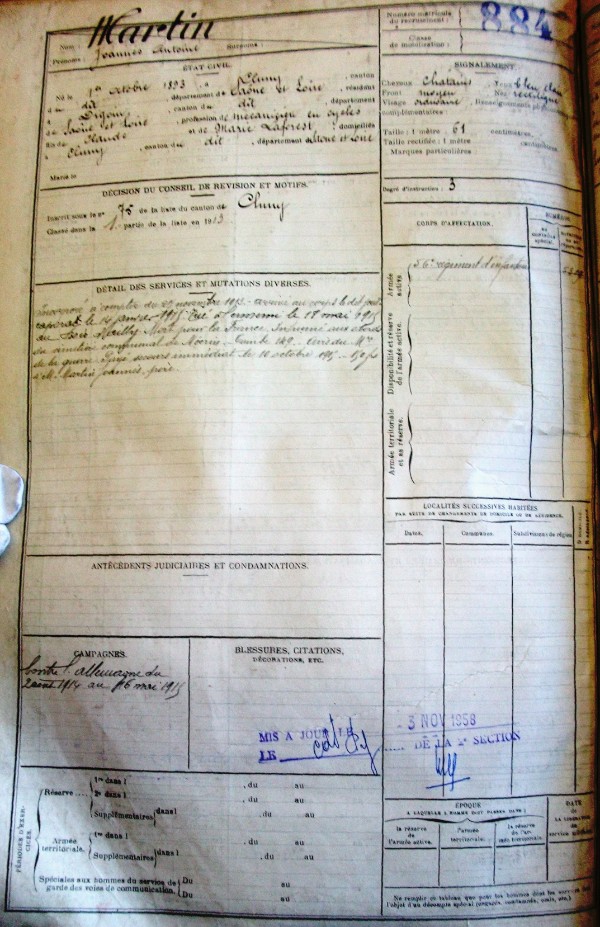 Martin
884
Numéro matricule
du recrutement :
Nom :
Prénoms : Joannès Antoine Surnoms :
Classe
de mobilisation :
ÉTAT CIVIL.
Né le 1er octobre 1893, à Cluny, canton
du dit, département de Saône et Loire, résidant
à Dijon, canton du dit, département
de Saône et Loire, profession de mécanicien en cycles
fils de Claude et de Marie Laforest, domiciliés
à Cluny, canton du dit, département Saône et Loire
Marié le
SIGNALEMENT.
Cheveux Châtains Yeux bleu clair
Front moyen Nez rectiligne
Visage ordinaire Renseignements
complémentaires :
Taille : 1 mètre 61 centimètres.
Taille rectifiée : 1 mètre centimètres.
Marques particulières
Degré d'instruction : 3
DÉCISION DU CONSEIL DE REVISION ET MOTIFS.
Inscrit sous le n° 75 de la liste du canton de Cluny
Classé dans la 1 partie de la liste en 1913
CORPS D'AFFECTATION.
NUMÉROS
au contrôle spécial.
Armée
active
56e régiment d'infanterie
Disponibilité et réserve
de l'armée active.
Armée territoriale
et sa réserve.
DÉTAIL DES SERVICES ET MUTATIONS DIVERSES.
Incorporé à compter du novembre 1913. arrivé au corps le dit jour
caporal le janvier 1915 Tué à l'ennemi le 18 mai 1915
au Bois Mort pour la France. Inhumé aux abords
du cimetière communal de tombe 149 Avis du Mre
de la guerre. Payé secours immédiat le 10 octobre 1915. 150 f
à M. Martin Joannès, père.
LOCALITÉS SUCCESSIVES HABITÉES
PAR SUITE DE CHANGEMENTS DE DOMICILE OU DE RÉSIDENCE.
Dates. Communes. Subdivisions de région.
ANTÉCÉDENTS JUDICIAIRES ET CONDAMNATIONS.
CAMPAGNES.
Contre l'Allemagne du
2 août 1914 au 16 mai 1915
BLESSURES, CITATIONS,
DÉCORATIONS, ETC.
MIS A JOUR LE
LE
3 NOV 1958
DE LA 2e SECTION
PÉRIODES D'EXERCICES.
Réserve
1re dans l , du au
2e dans l , du au
Supplémentaires dans l , du au
Armée
territoriale.
1re dans l , du au
Supplémentaires dans l , du au
Spéciales aux hommes du service de
garde des voies de communication.
Du au
Du au
ÉPOQUE
À LAQUELLE L'HOMME DOIT PASSER DANS :
la réserve
de l'armée active.
l'armée
territoriale.
la réserve
de l'armée territoriale.
DATE
DE LA
Ne remplir ce tableau que pour les hommes dont les services
l'objet d'un décompte spécial (engagés, condamnés, omis, etc.)